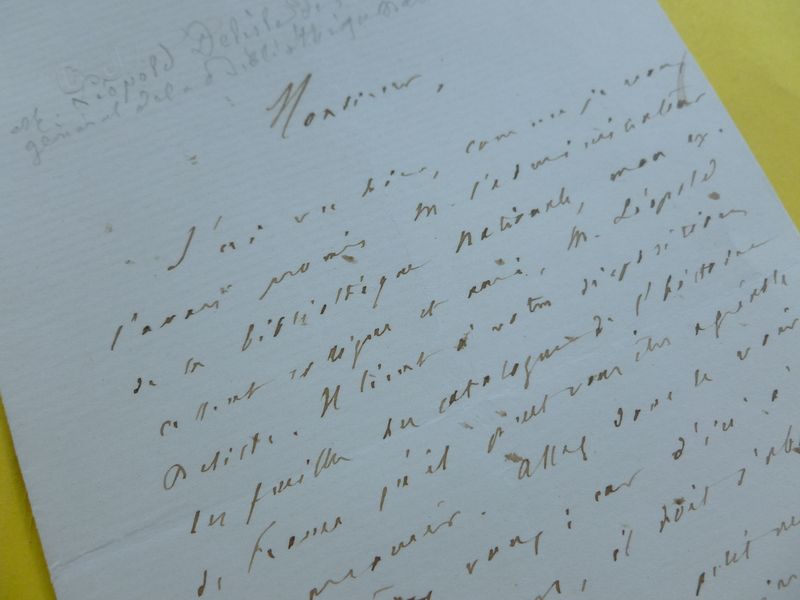 Léopold Delisle
général de la Bibliothèque
Monsieur,
J'ai vu hier, comme je vous
l'avais promis M. l'administrateur
de la bibliothèque nationale, mon ex-
cellent collègue et ami, M. Léopold
Delisle. Il tient à votre disposition
les feuilles du catalogue de l'histoire
de France qu'il peut vous être agréable
Allez donc le voir
vous ; car d'ici à
, il doit s'abs
peut